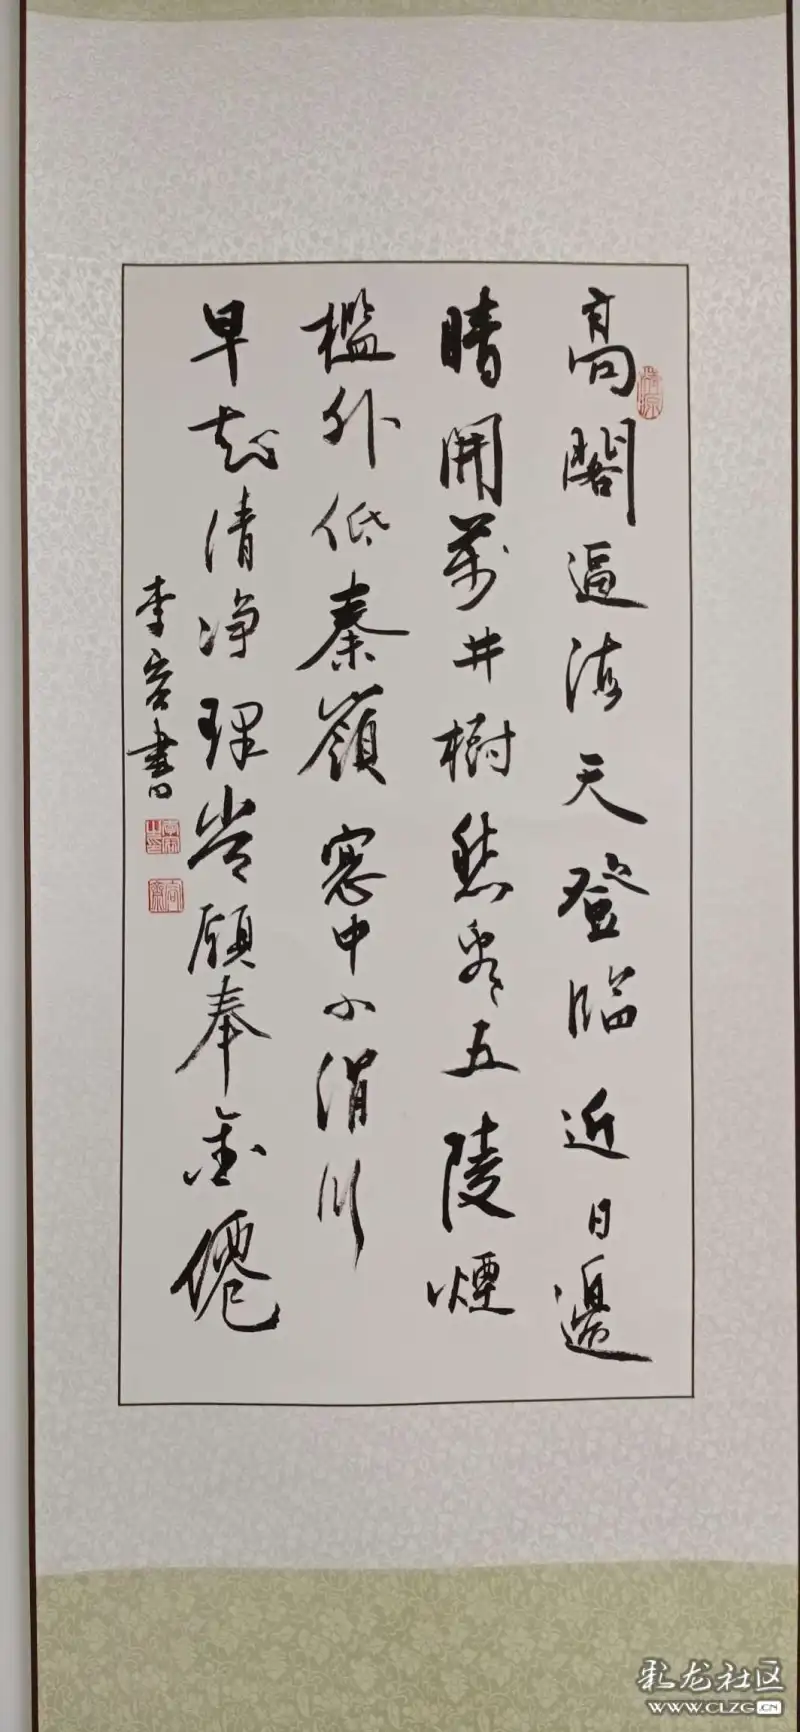 高閣逼诸天登臨近日邊
晴開萬井樹愁看五陵煙
檻外低秦嶺窓中小渭川
早知清净理常願奉金僊
李書
彩龙社区
WWW.CLZG.CN